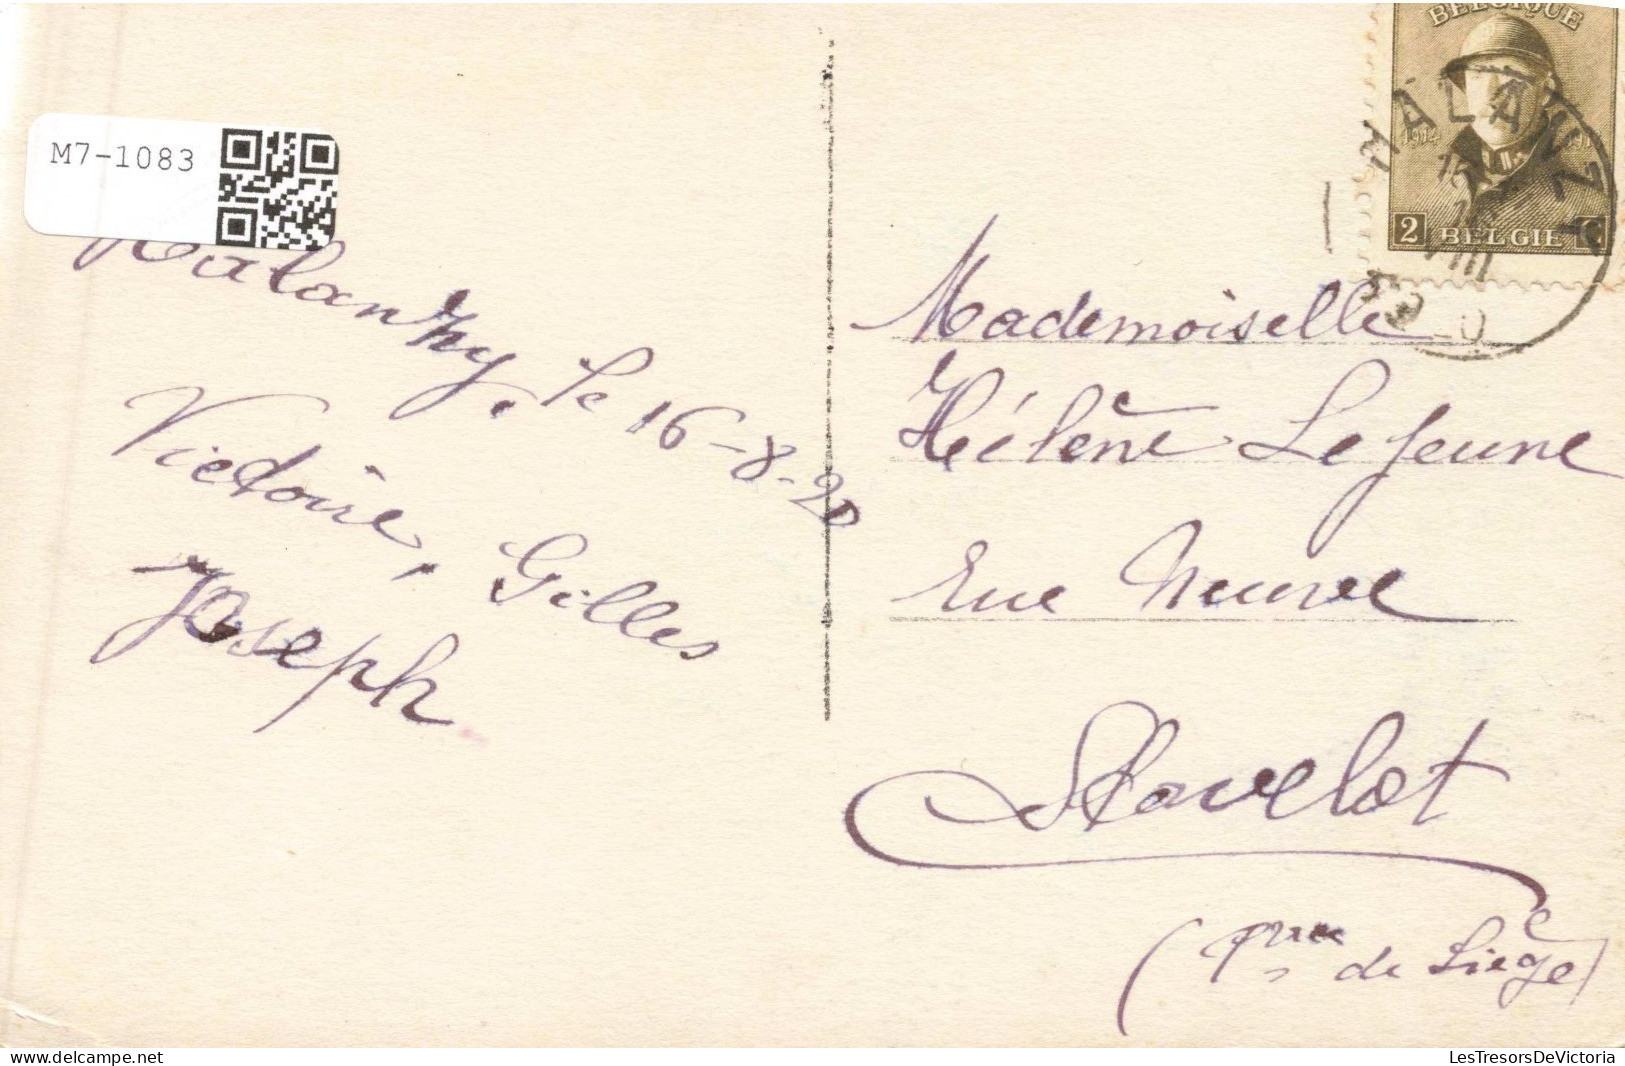 M7-1083
Halanzy, le 16-8-20
Victoire, Gilles
Joseph
BELGIQUE
1914
2 BELGIE C
HALANZY
VIII
Mademoiselle
Hélène Lejeune
Rue Neuve
Stavelot
(Pce de Liège)
LesTresorsDeVictoria